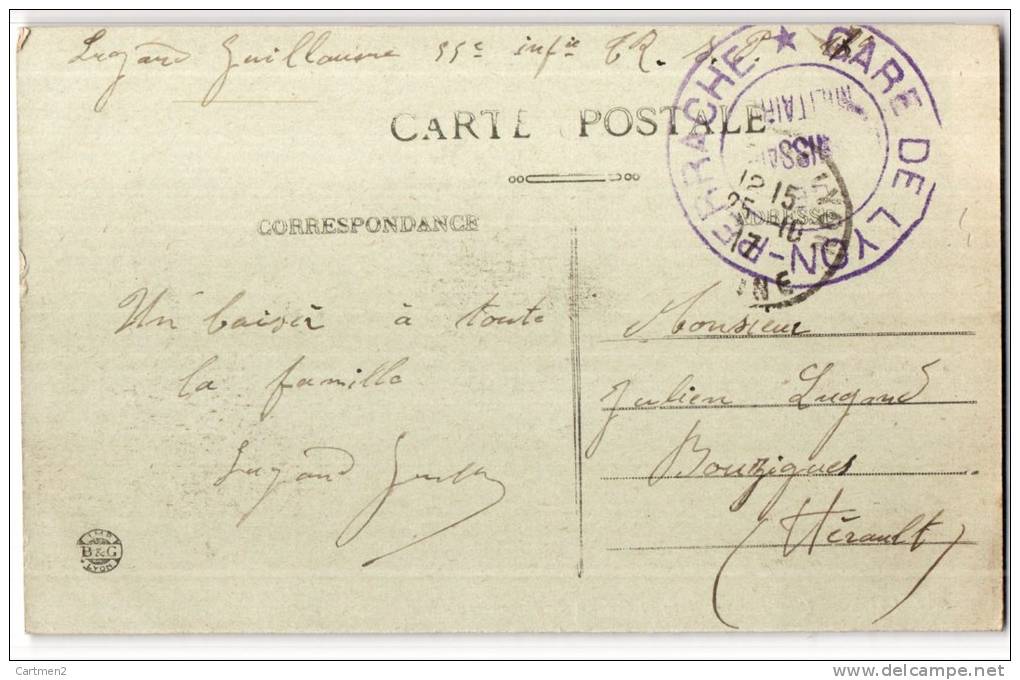 Lugand Guillaume 55e infie
CARTE POSTALE
GARE DE LYON-PERRACHE ★
MILITAIR
12 15
25 10
17
CORRESPONDANCE
ADRESSE
Un baiser à toute
la famille
Lugand
Monsieur
Julien Lugand
Bouzigues
(Hérault)
IMP
B&G
LYON
Cartmen2
www.delcampe.net